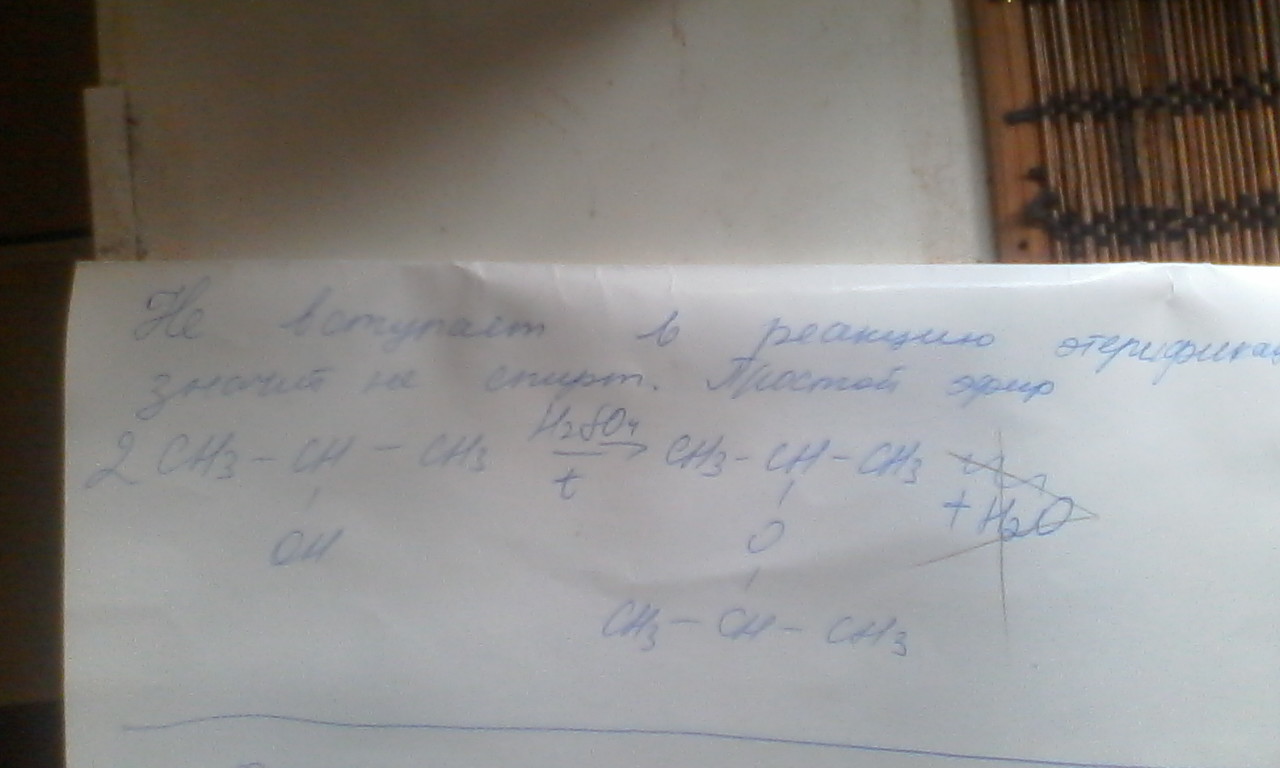 Не вступает в реакцию этерифика
значит не спирт. Простой эфир
2 CH3 - CH - CH3 H2SO4 t → CH3 - CH - CH3
OH O + H2O
CH3 - CH - CH3